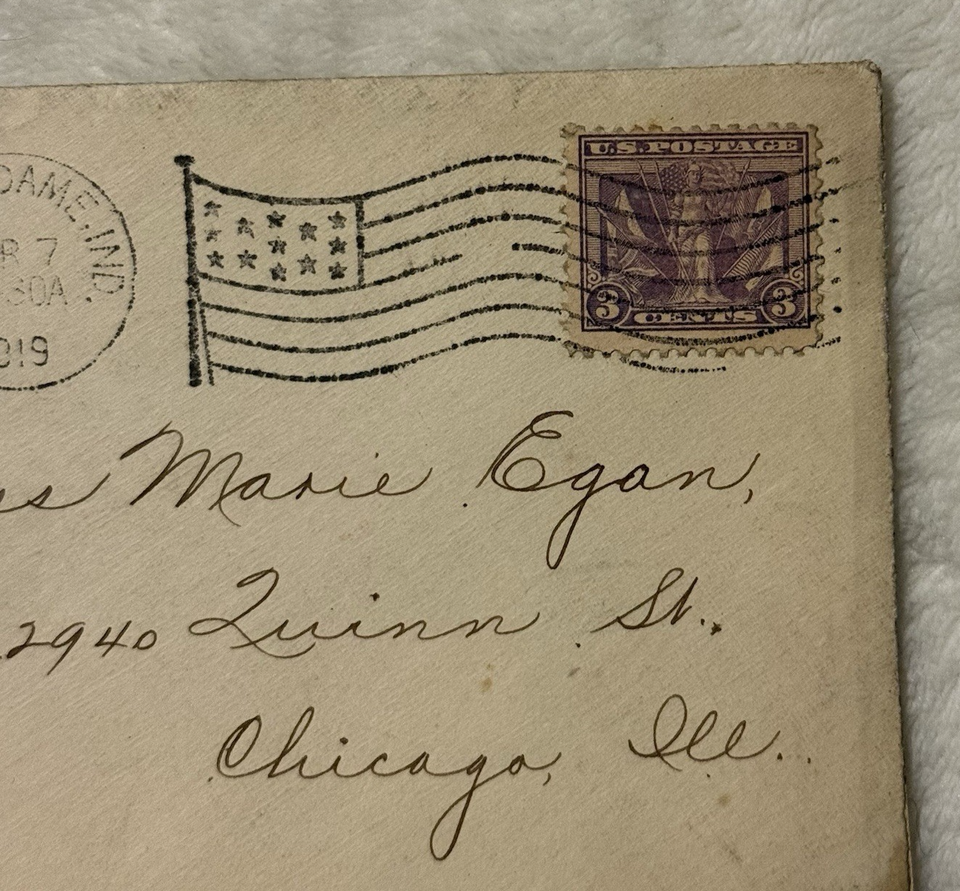 DAME, IND.
R 7
30A
1919
U.S. POSTAGE
3 CENTS 3
ss Marie Egan,
2940 Quinn St.
Chicago, Ill.